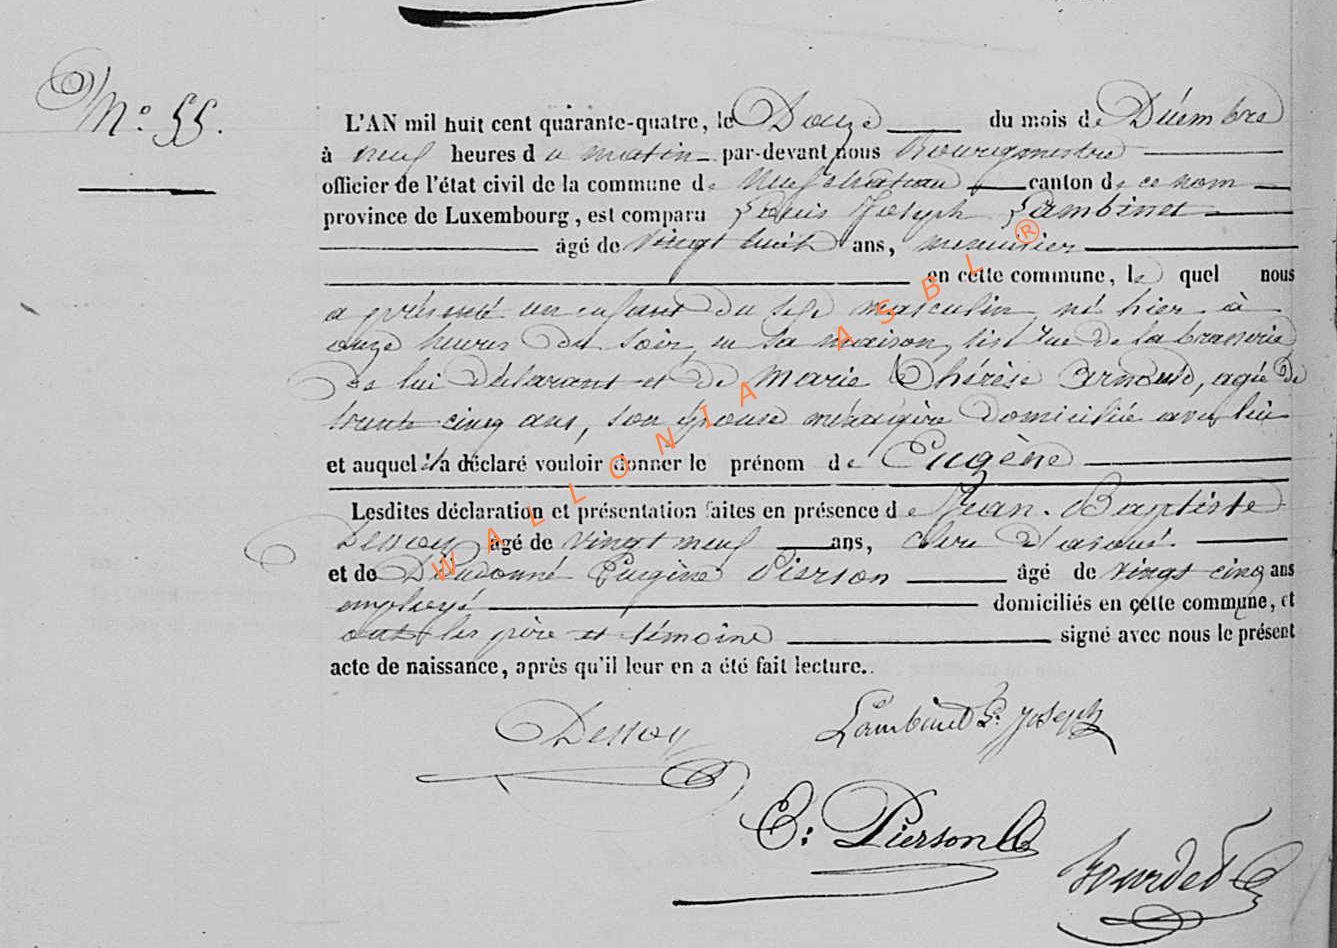 N.° 55.
L'AN mil huit cent quarante-quatre, le Douze du mois de Décembre
à neuf heures du matin par-devant nous Bourgmestre
officier de l'état civil de la commune de Neufchateau canton de ce nom
province de Luxembourg, est comparu Louis Joseph Lambinet
âgé de vingt huit ans, menuisier
en cette commune, le quel nous
a présenté un enfant du sexe masculin né hier à
onze heures du soir, en sa maison, sise rue de la brasserie
de lui déclarant et de Marie Thérèse Arnould, agée de
trente cinq ans, son épouse ménagère domiciliée avec lui
et auquel il a déclaré vouloir donner le prénom de Eugène
Lesdites déclaration et présentation faites en présence de Jean-Baptiste
Dessoy âgé de vingt neuf ans, clerc d'avoué.
et de Dieudonné Eugène Pierson âgé de vingt cinq ans
employé domiciliés en cette commune, et
ont les père et témoins signé avec nous le présent
acte de naissance, après qu'il leur en a été fait lecture.
Dessoy Lambinet L. Joseph
E: Pierson
Bourdet
WALLONIA ASBL ®